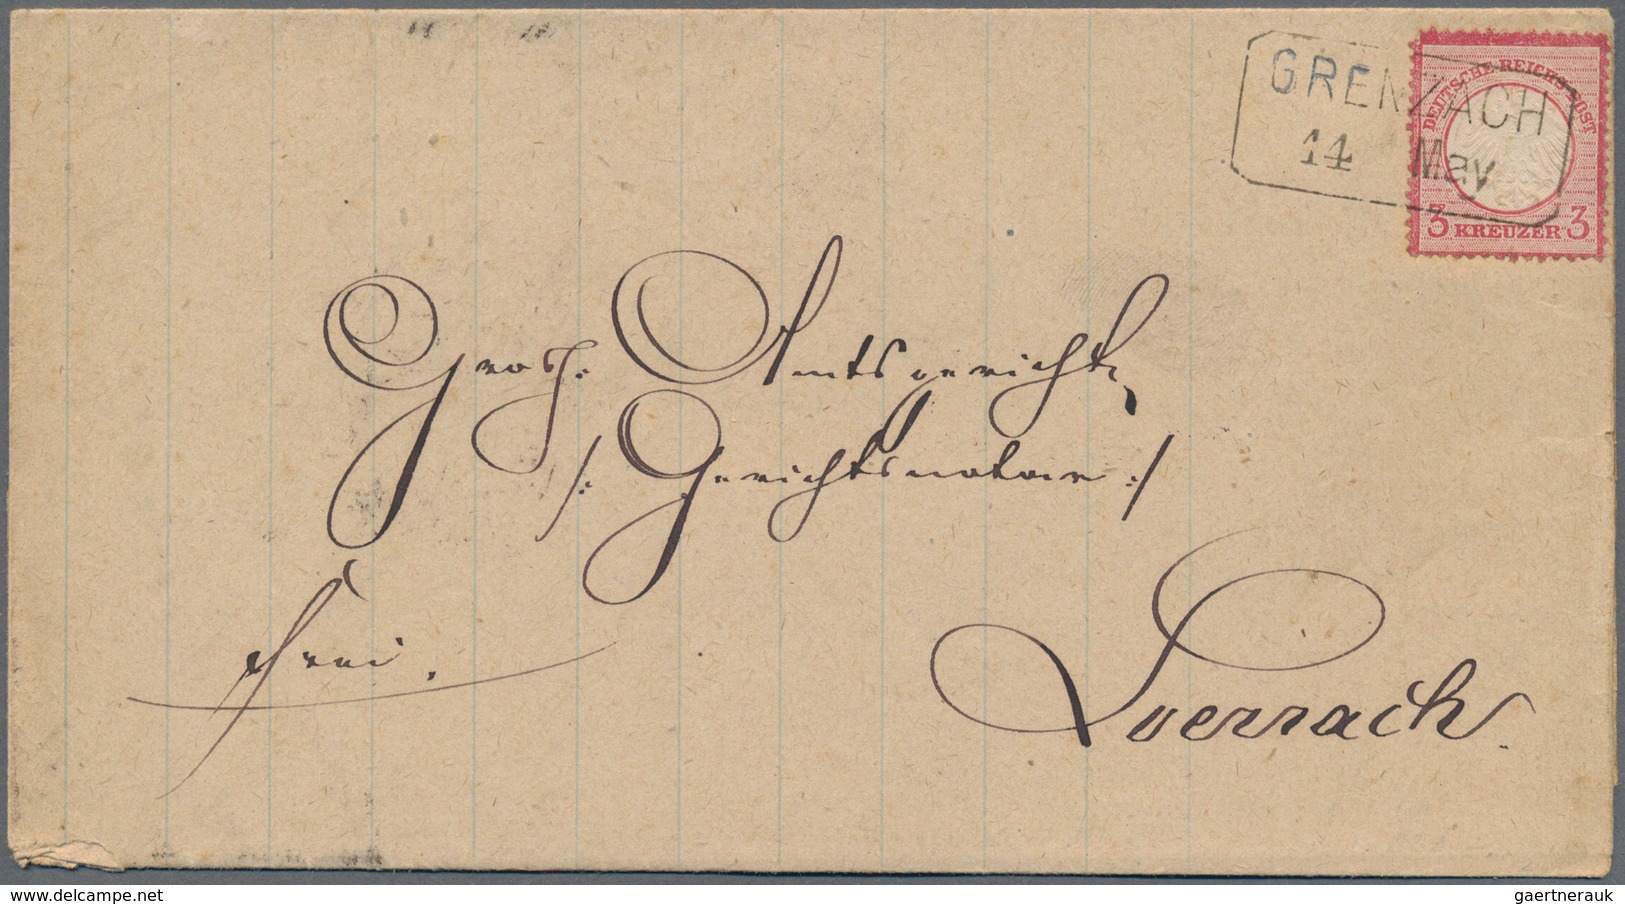 GRENZACH
14 May
DEUTSCHE REICHS-POST
3 KREUZER 3
Grosh. Amtsgericht
/: Gerichtsnotar :/
frei.
Loerrach.
delcampe.net
gaertnerauk